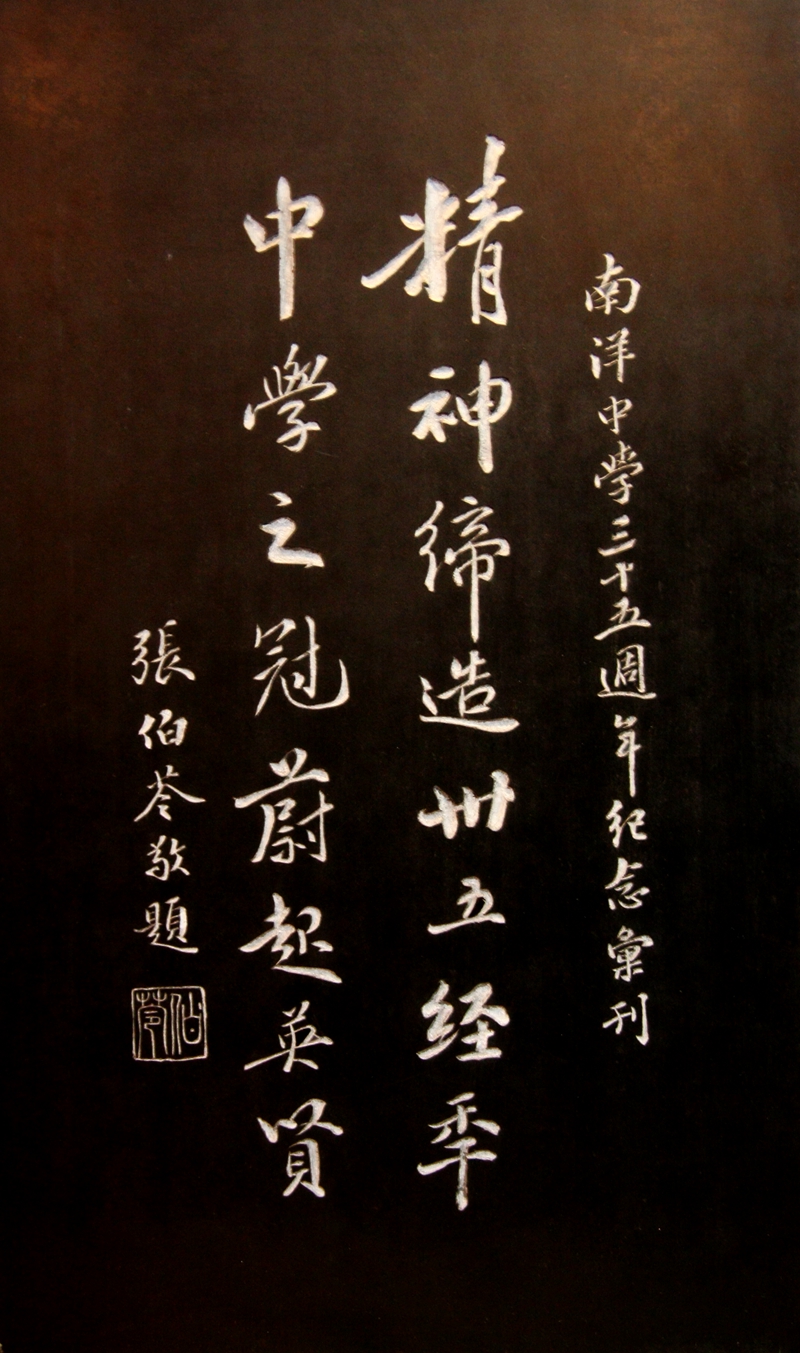 南洋中学三十五週年纪念彙刊
精神缔造卅五经年
中學之冠蔚起英贤
張伯苓敬題
伯苓